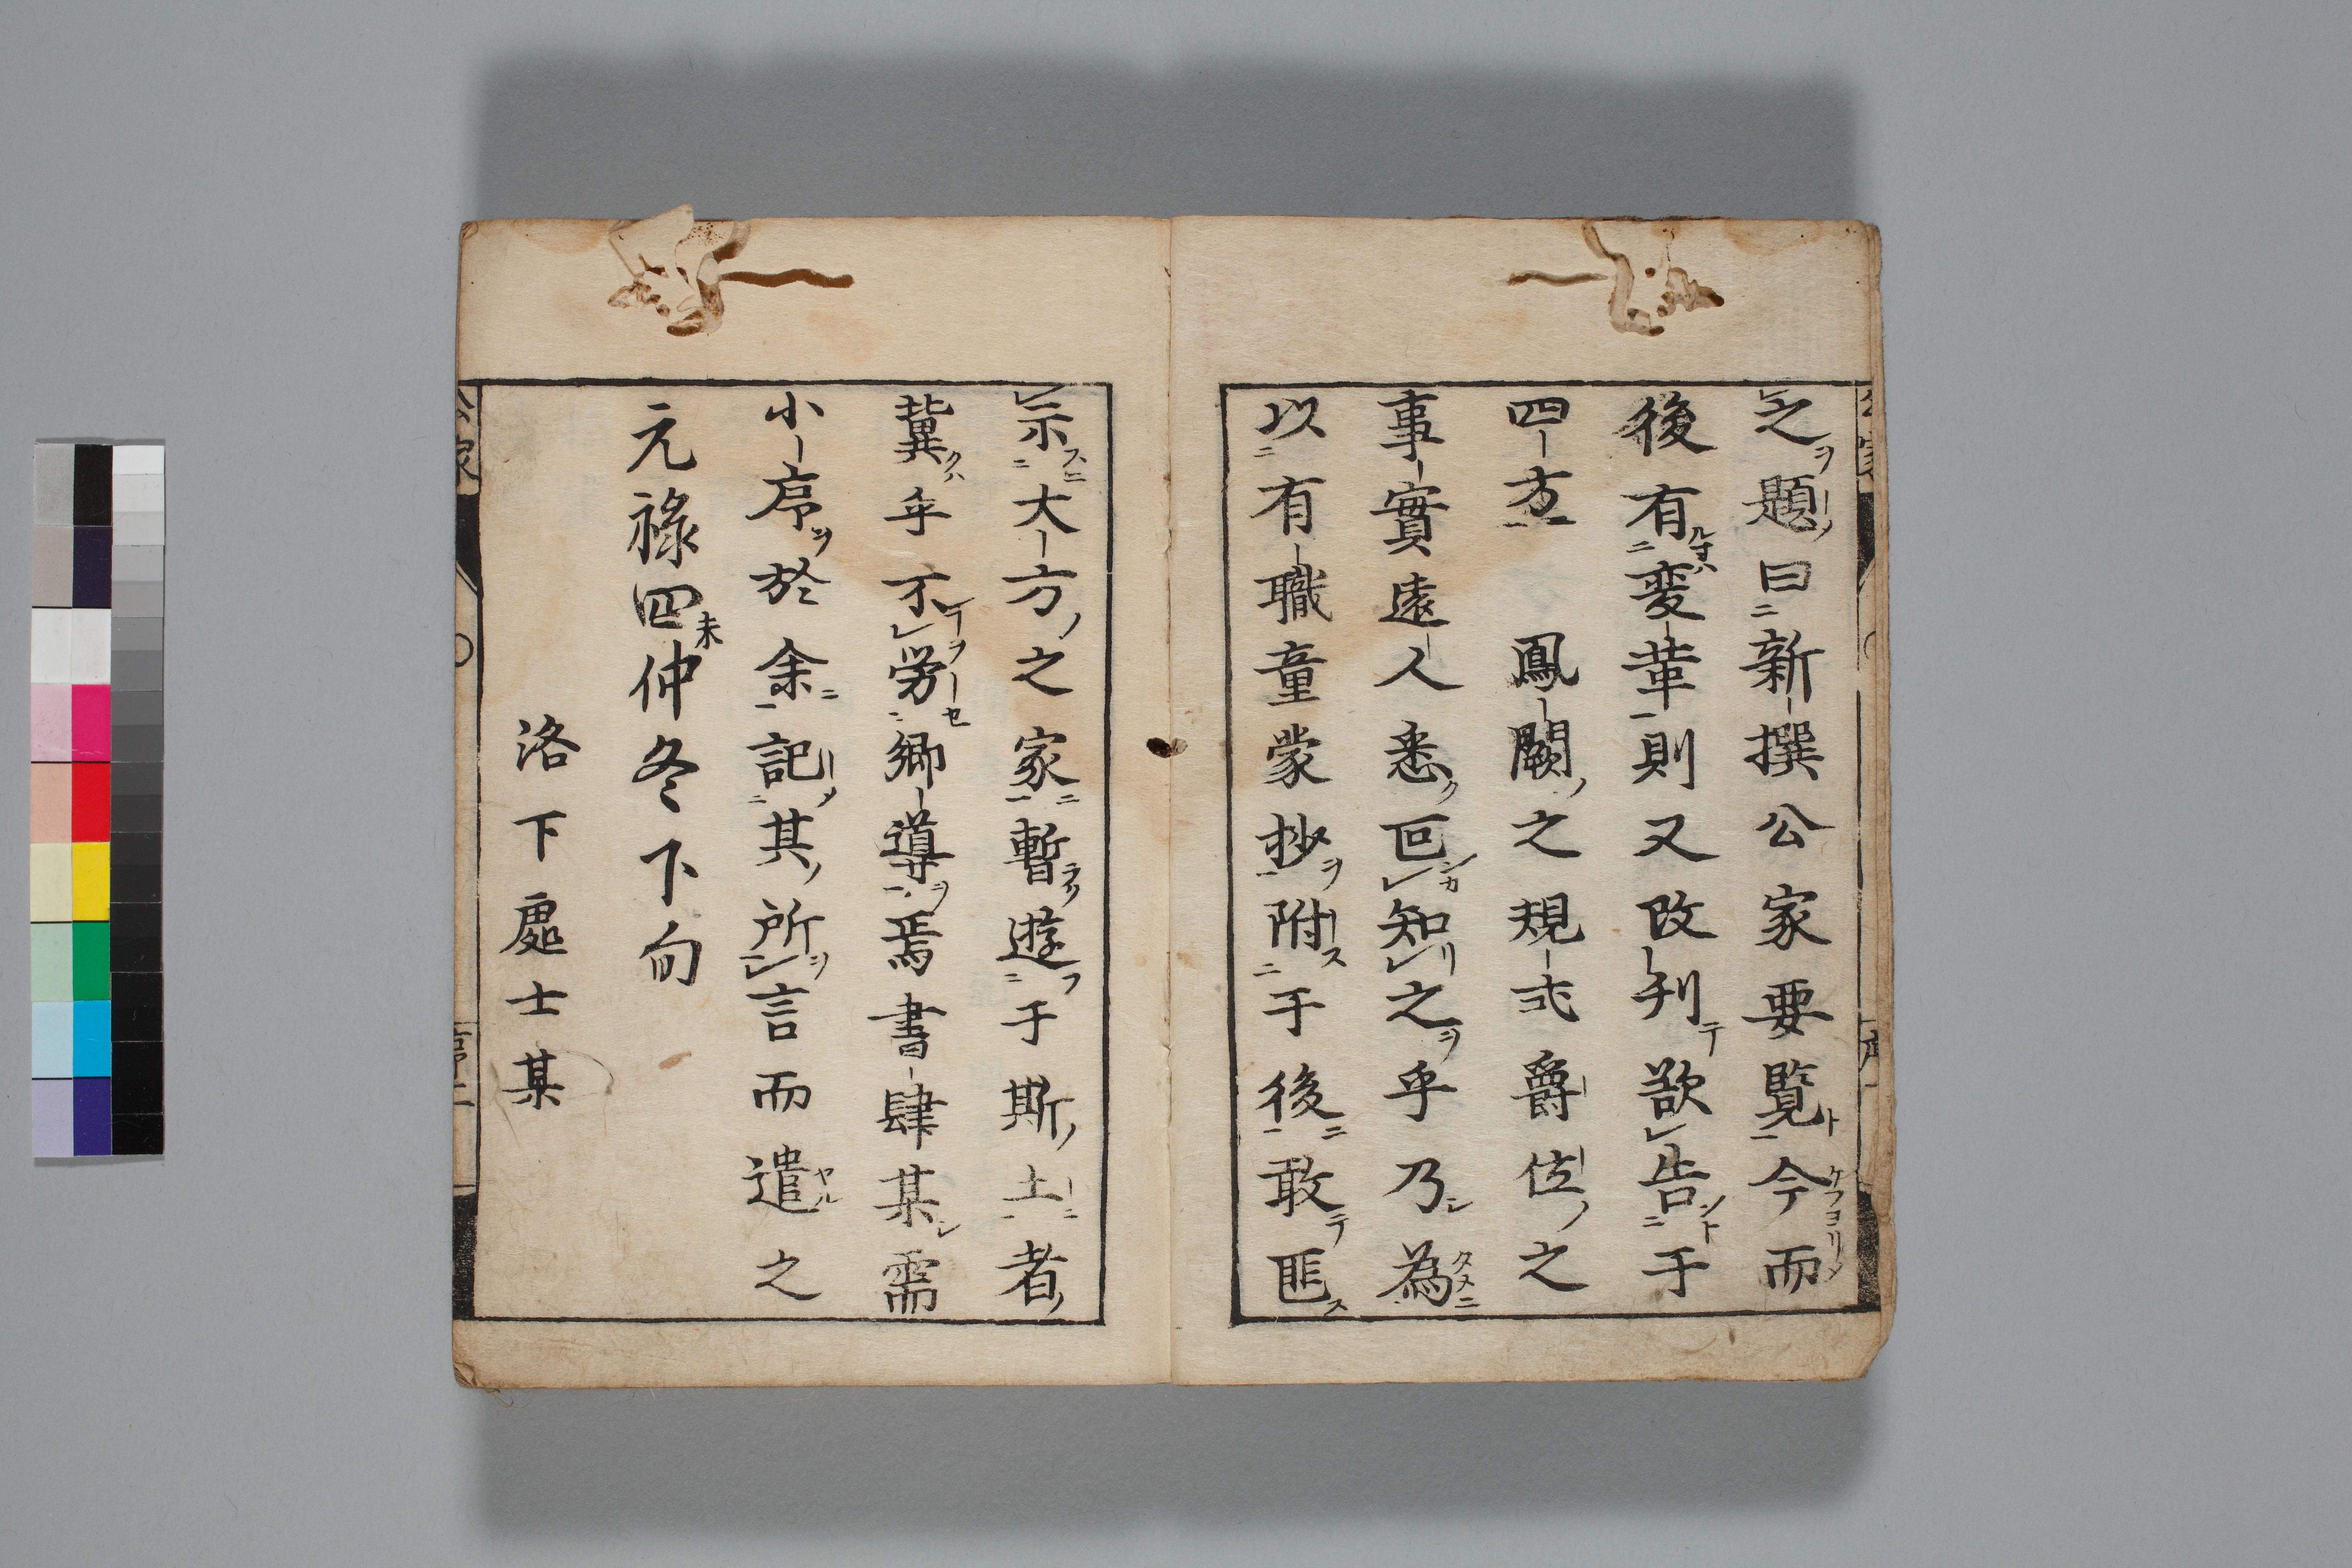 之題曰新撰公家要覧今而
後有変革則又改刋欲告于
四方 鳳闕之規式爵位之
事實遠人悉叵知之乎乃為
以有職童蒙抄附于後敢匪
示大方之家暫遊于斯土者
冀乎不労郷導焉書肆某需
小序於余記其所言而遣之
元禄四未仲冬下旬
洛下處士某